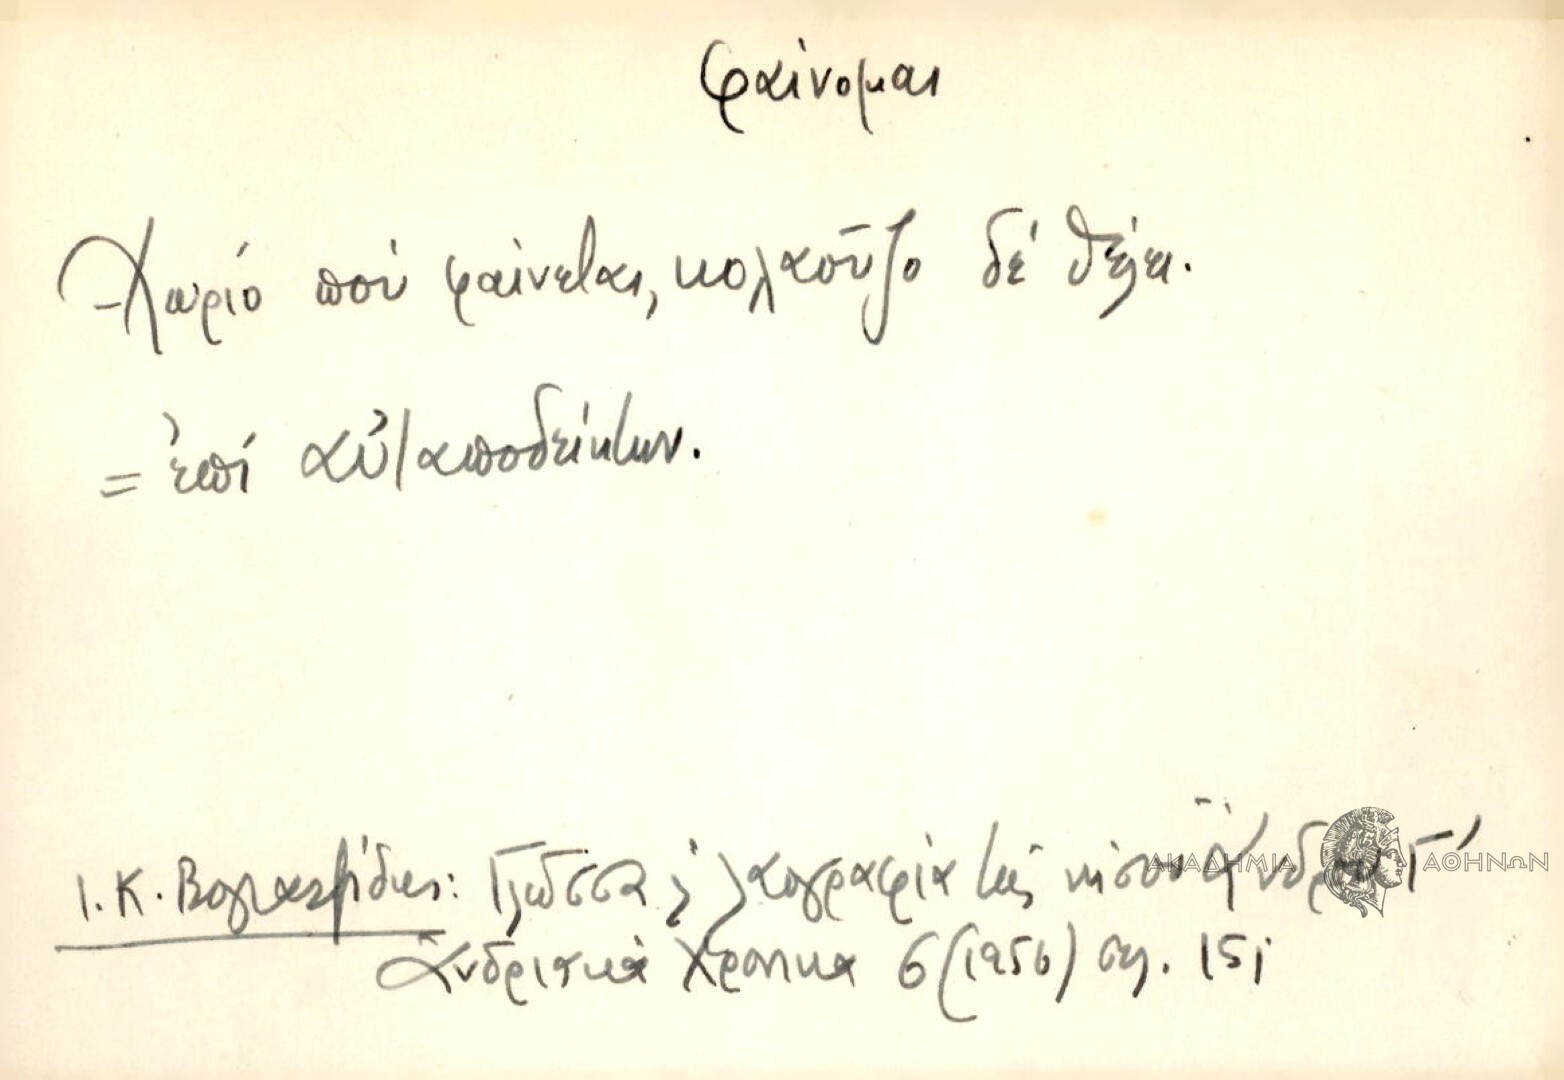 φαίνομαι
-Χωριό πού φαίνεται, κολαοῦζο δέ θέλει.
= ἐπί αὐταποδείκτων.
Ι. Κ. Βογιατζίδης: Γλῶσσα λαογραφία τῆς νήσου Ἄνδρου Γ'
Ἀνδριακά Χρονικα 6 (1956) σελ. 151
ΑΚΑΔΗΜΙΑ ΑΘΗΝΩΝ